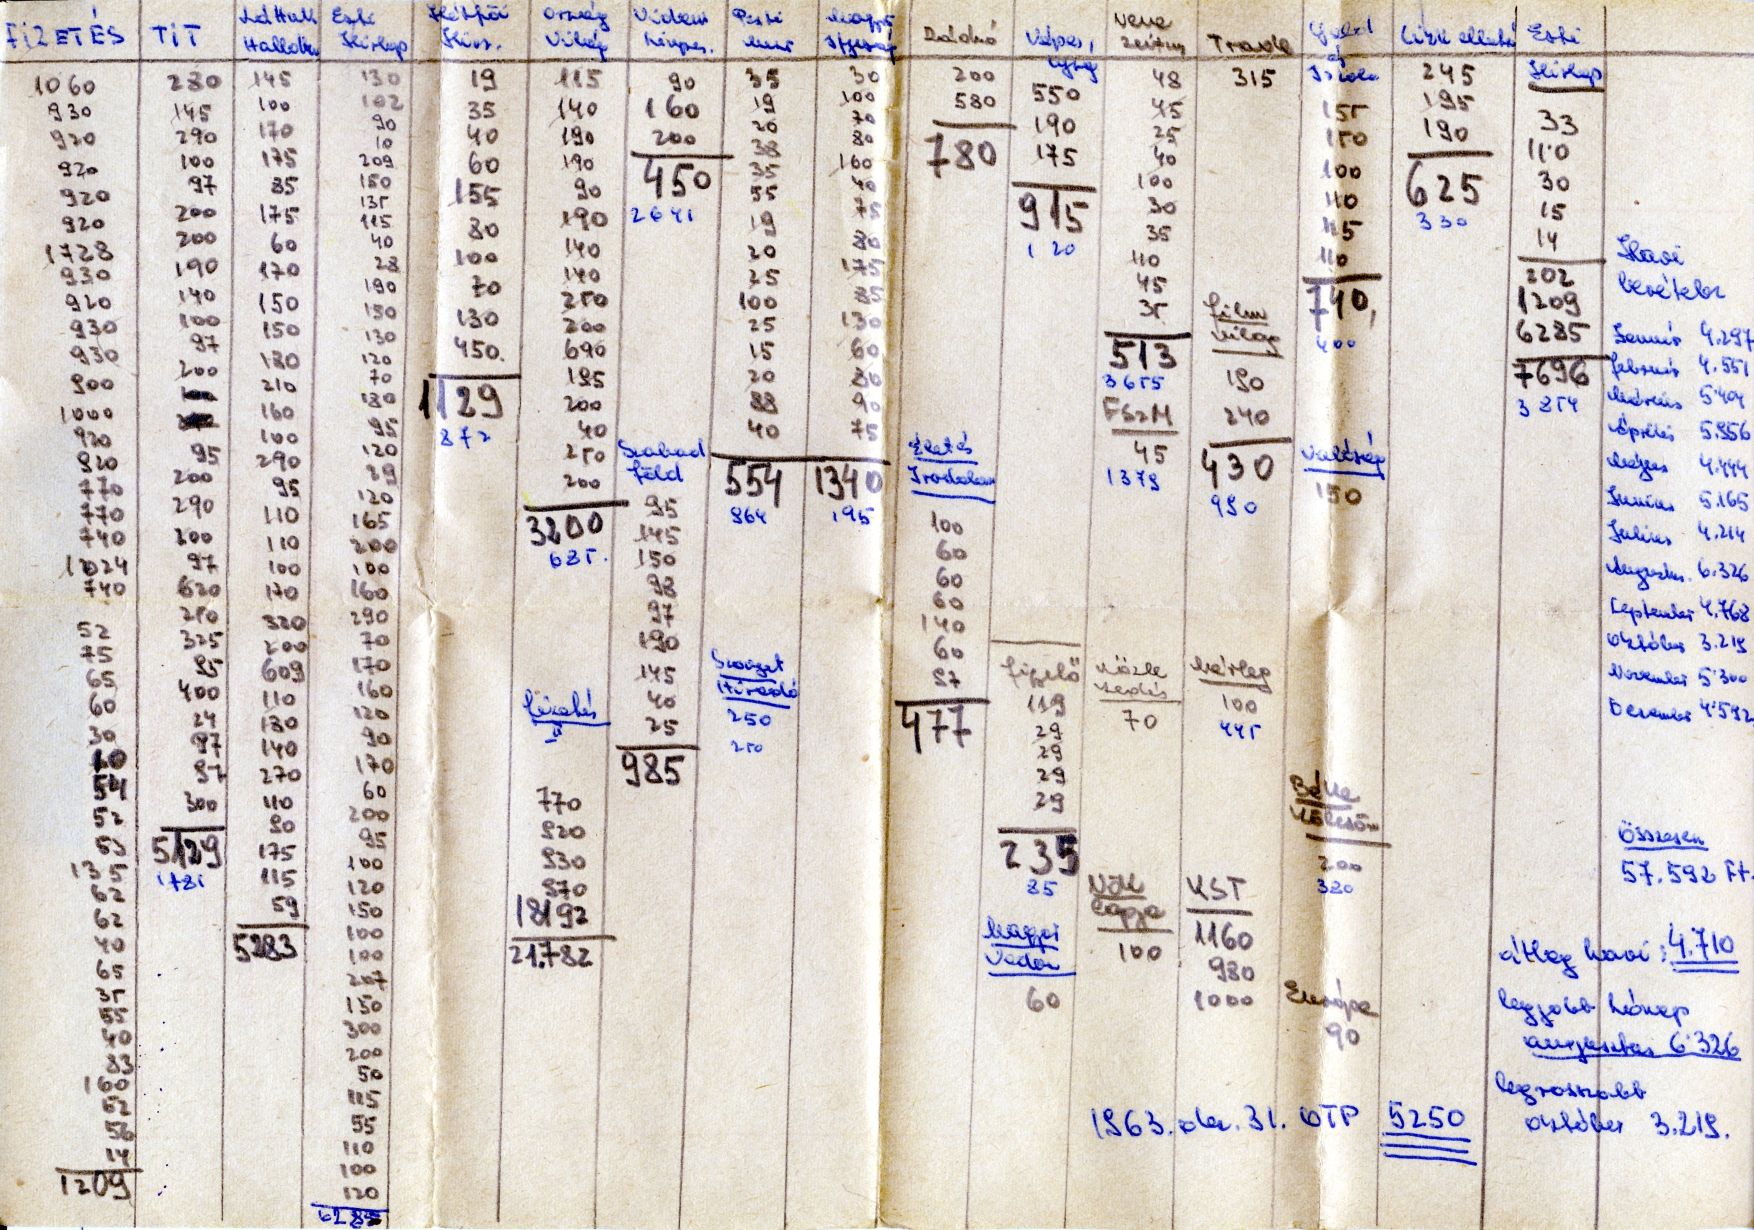 FIZETÉS
1060
930
920
920
920
920
1728
930
920
930
930
900
1000
920
820
770
770
740
1024
740
52
75
65
60
30
54
52
135
62
62
40
65
35
55
40
83
160
52
56
14
1209
TIT
280
145
290
100
97
200
200
190
140
100
97
200
95
200
290
200
97
620
250
325
95
400
24
97
97
300
5129
1781
145
100
170
175
85
175
60
170
150
150
180
210
160
100
290
95
110
110
100
170
320
200
609
110
130
140
270
110
90
175
115
59
5283
Esti
Hirlap
130
102
90
10
209
150
135
115
40
28
190
150
130
120
70
180
95
120
29
120
165
200
100
160
290
70
170
160
120
90
170
60
200
95
100
120
150
100
100
207
150
300
200
50
115
55
110
100
120
6285
Hétfői
Hírs.
19
35
40
60
155
80
100
70
130
450
1129
872
Ország
Világ
115
140
190
190
90
190
140
140
250
200
690
195
200
40
250
200
3200
685.
Fizetés
II
770
920
930
970
18192
21.782
90
160
200
450
2641
Szabad
Föld
95
145
150
98
97
190
145
40
25
985
Pesti
35
19
20
38
35
55
19
20
25
100
25
15
20
88
40
554
964
Szovjet
Híradó
250
250
30
100
70
80
160
40
75
80
175
85
130
60
80
90
75
1340
195
Rádió
200
580
780
Élet és
Irodalom
100
60
60
60
140
60
97
477
550
190
175
915
120
Figyelő
119
29
29
29
29
235
85
Magyar
60
Neue
Zeitung
48
45
25
40
100
30
35
110
45
35
513
3655
FSzM
45
1379
70
Lapja
100
Trade
315
Film
Világ
190
240
430
990
Mérleg
100
445
KST
1160
980
1000
155
150
100
110
115
110
740
400
Valóság
150
Béke
Kölcsön
200
380
Európa
90
245
195
190
625
330
Esti
Hirlap
33
110
30
15
14
202
1209
6285
7696
3854
Havi
bevételem
Január 4.297
Február 4.551
Március 5.404
Április 5.956
Május 4.444
Junius 5.165
Julius 4.214
Augusztus 6.326
Szeptember 4.768
Október 3.219
November 5.300
December 4.592
Összesen
57.592 Ft.
átlag havi: 4.710
legjobb hónap
augusztus 6.326
legrosszabb
október 3.219.
1963. dec. 31. OTP 5250